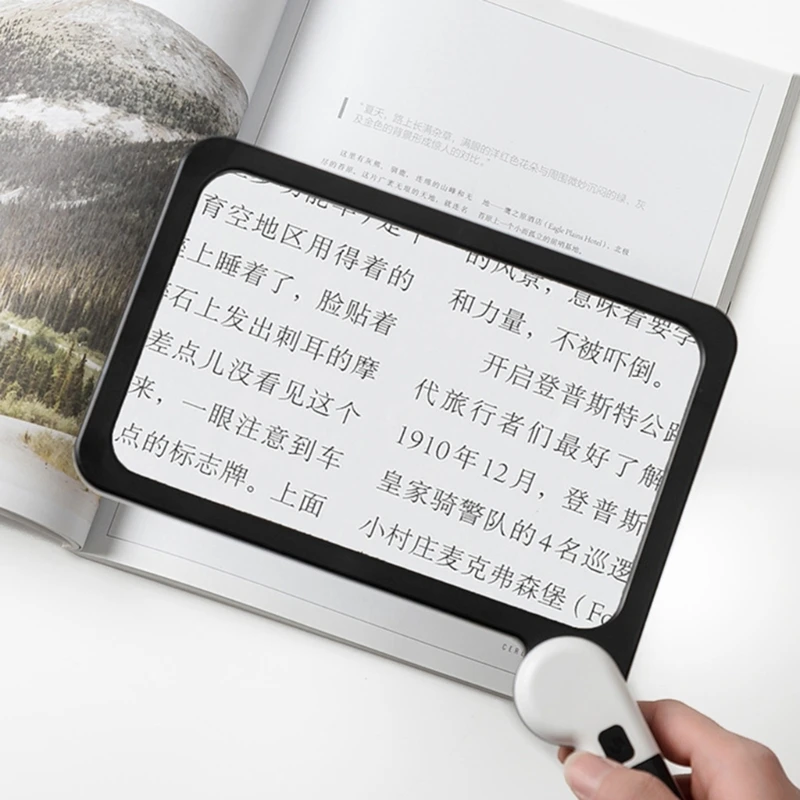 “夏天，路上长满杂草，满眼的洋红色花朵与周围微妙沉闷的绿、灰
及金色的背景形成惊人的对比。”
这里有灰熊、驯鹿，连绵的山峰和无
尽的苔原。这片广袤无垠的天地，就连名
地——鹰之原酒店（Eagle Plains Hotel），北极
苔原上一个小而孤立的
育空地区用得着的
上睡着了，脸贴着
石上发出刺耳的摩
差点儿没看见这个
来，一眼注意到车
点的标志牌。上面
的风景，意味着要学
和力量，不被吓倒。
开启登普斯特公路
代旅行者们最好了解
1910年12月，登普斯
皇家骑警队的4名巡逻
小村庄麦克弗森堡（Fo